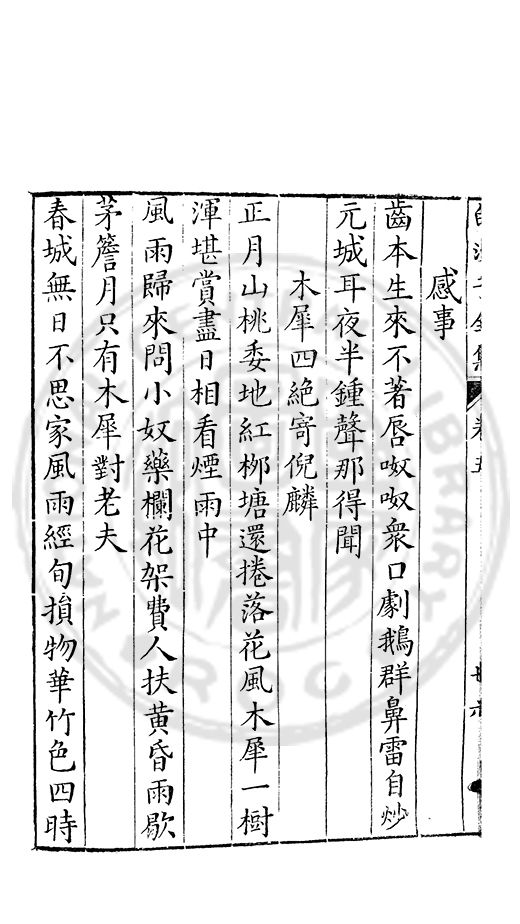 感事
齒本生來不著唇呶呶衆口劇鵝群鼻雷自炒
元城耳夜半鍾聲那得聞
木犀四絶寄倪麟
正月山桃委地紅栁塘還捲落花風木犀一樹
渾堪賞盡日相看煙雨中
風雨歸來問小奴藥欄花架費人扶黄昏雨歇
茅簷月只有木犀對老夫
春城無日不思家風雨經旬損物華竹色四時